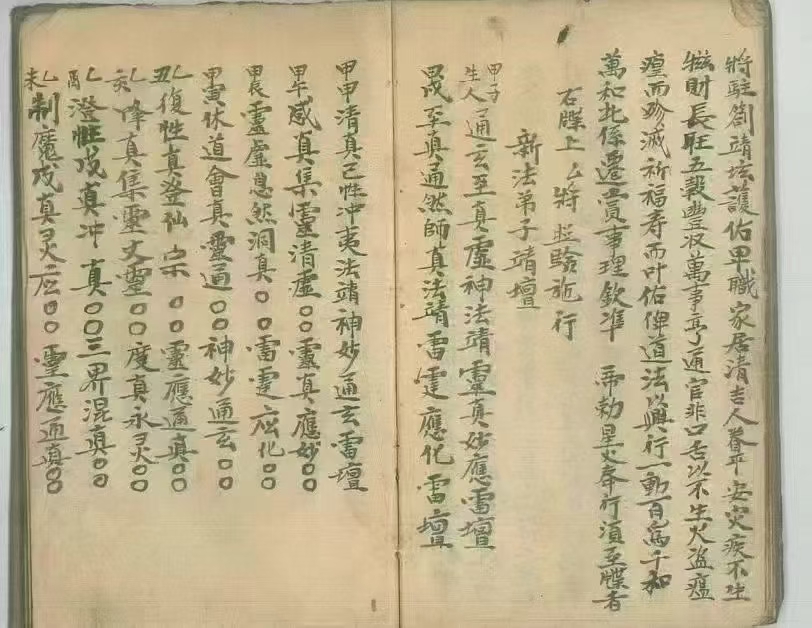 將駐劄靖坛護佑甲職家居清吉人眷平安灾疾不生
牲財長旺五穀豐収萬事亨通官非口舌以不生火盗瘟
㾮而殄滅祈福寿而叶佑俾道法以興行一動百為千和
萬和北係遷賞事理欽準 帝勅星火奉行湏至牒者
右牒上 厶將 照驗施行
新法弟子靖壇
甲子生人 通玄至真虚神法靖靈真妙應雷壇
甲戌至真通然師真法靖雷霆應化雷壇
甲申清真己性冲夷法靖神妙通玄雷壇
甲午感真集靈清虚〇〇靈真應妙〇〇
甲辰靈虚惠然洞真〇〇雷霆応化〇〇
甲寅休道會真靈通〇〇神妙通玄〇〇
乙丑復性真澄仙宗〇〇靈應通真〇〇
乙亥降真集靈文靈〇〇度真永灵〇〇
乙酉澄性成真冲真〇〇三界混真〇〇
乙未制魔成真灵応〇〇靈應通真〇〇